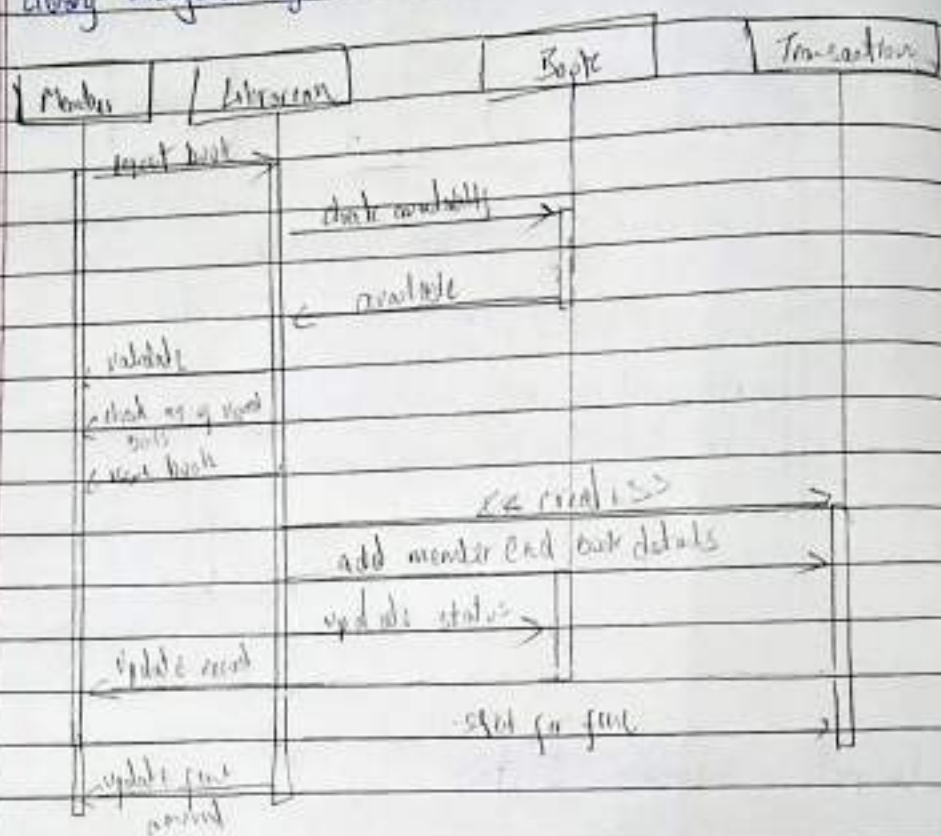 Library
Member Librarian Book Transaction
request book
check availability
available
validate
check no of issued
book
add member end book details
update status
update record
update fine
amount